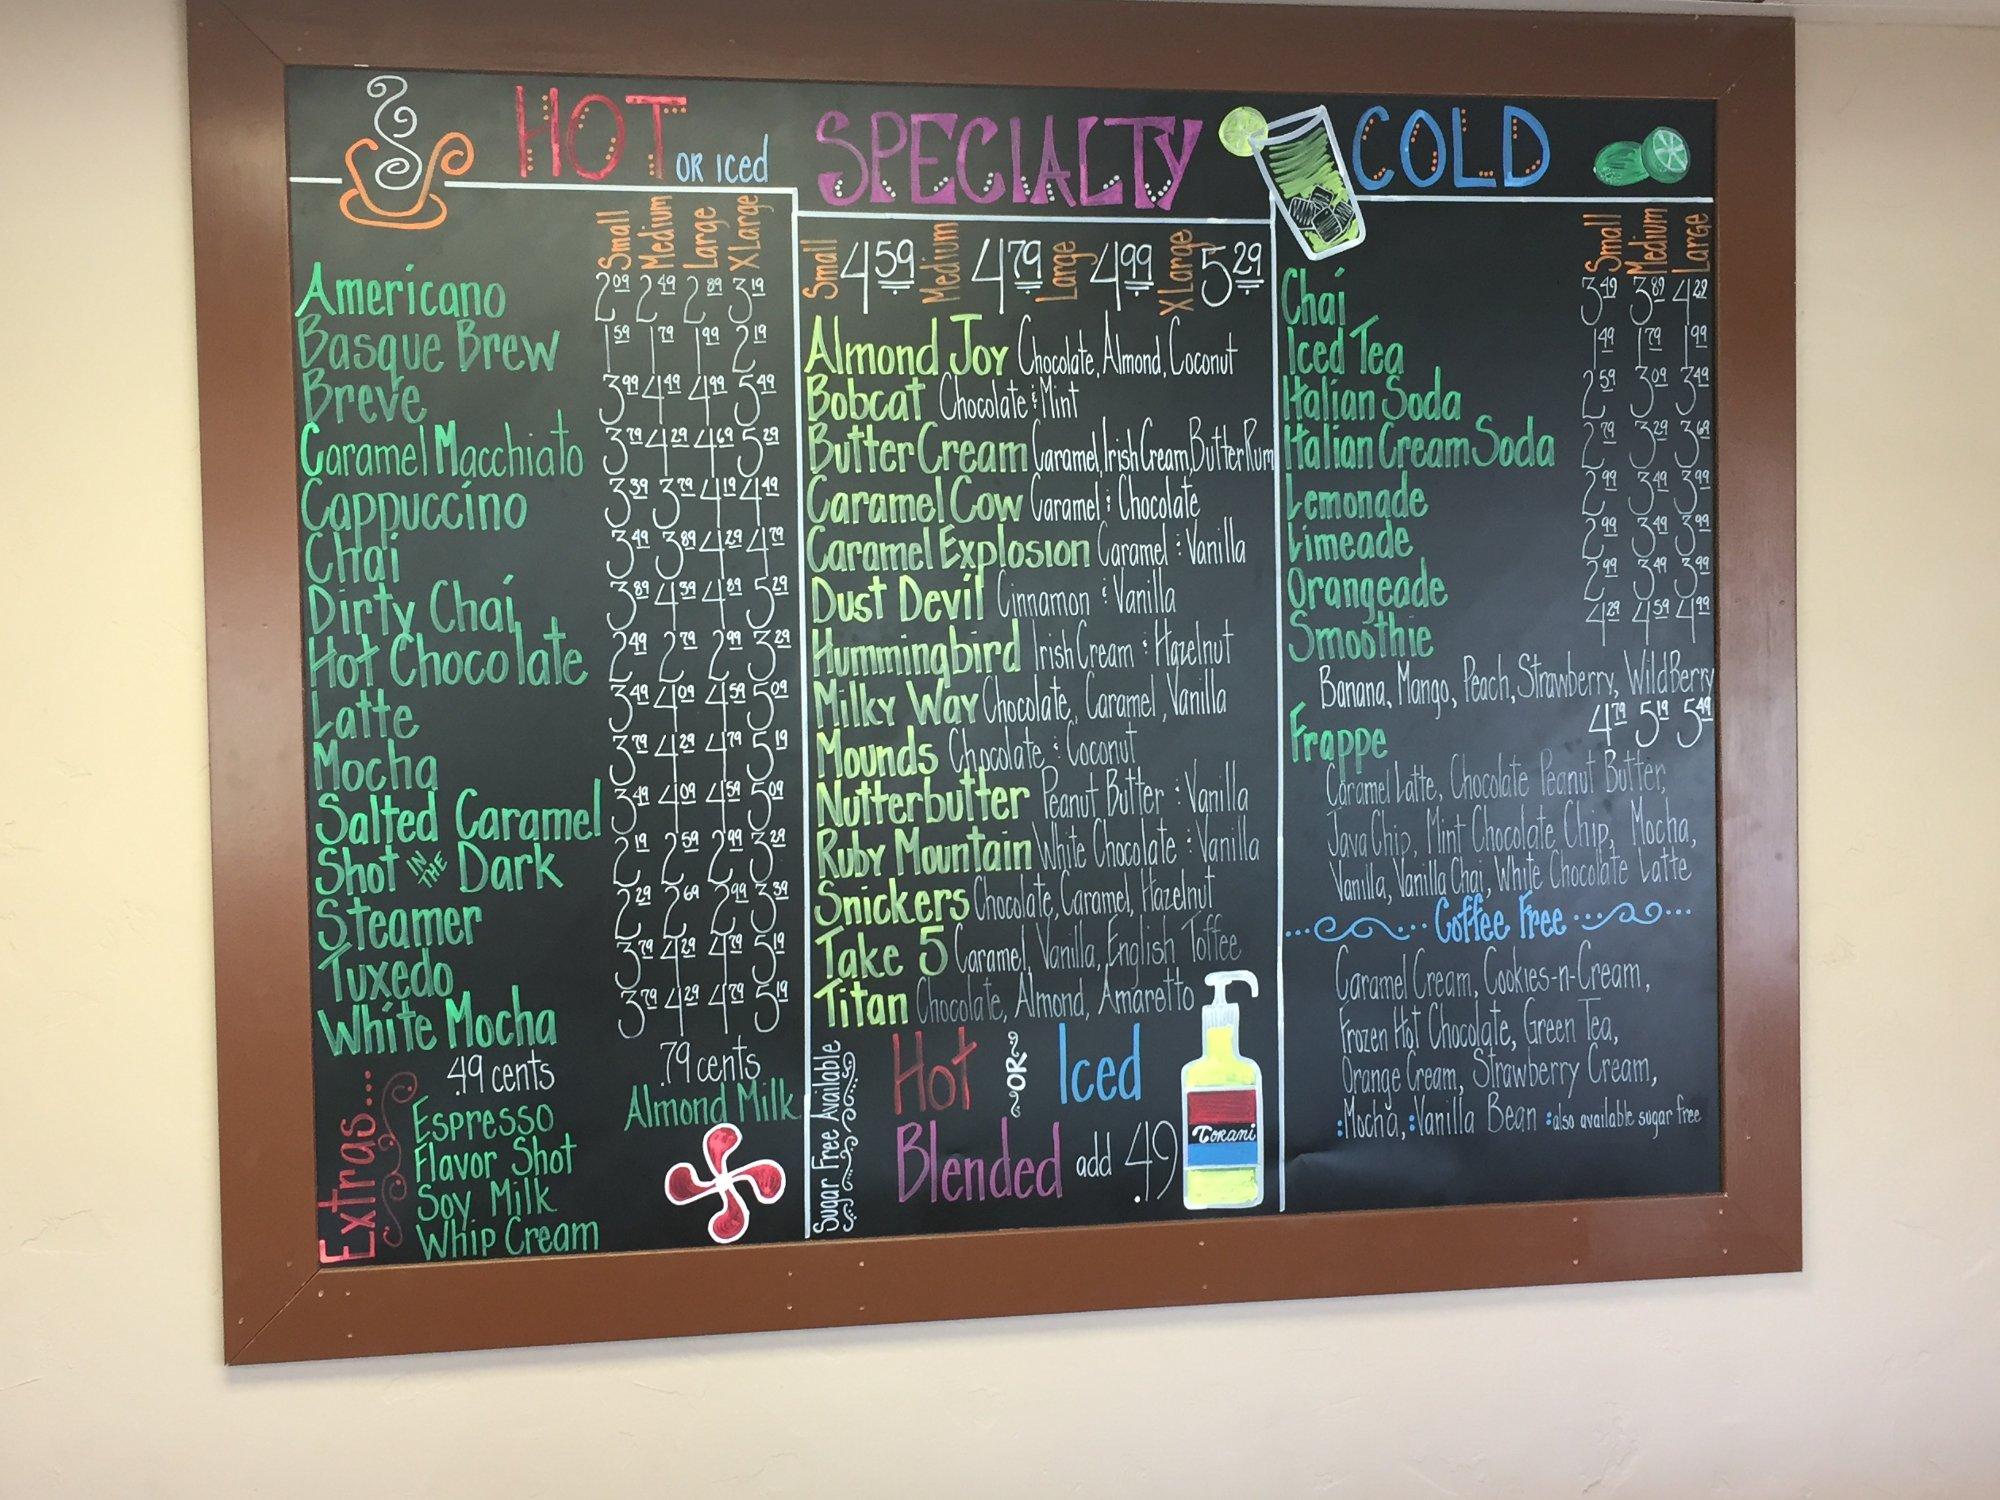 HOT OR ICED
Small Medium Large X Large
Americano 2.09 2.49 2.89 3.19
Basque Brew 1.59 1.79 1.99 2.19
Breve 3.99 4.49 4.99 5.49
Caramel Macchiato 3.79 4.29 4.69 5.29
Cappuccino 3.39 3.79 4.19 4.49
Chai 3.49 3.89 4.29 4.79
Dirty Chai 3.89 4.39 4.89 5.29
Hot Chocolate 2.49 2.79 2.99 3.29
Latte 3.49 4.09 4.59 5.09
Mocha 3.79 4.29 4.79 5.19
Salted Caramel 3.49 4.09 4.59 5.09
Shot IN THE Dark 2.19 2.59 2.99 3.29
Steamer 2.29 2.69 2.99 3.39
Tuxedo 3.79 4.29 4.79 5.19
White Mocha 3.79 4.29 4.79 5.19
Extras...
.49 cents
Espresso
Flavor Shot
Soy Milk
Whip Cream
.79 cents
Almond Milk
SPECIALTY
Small 4.59 Medium 4.79 Large 4.99 X Large 5.29
Almond Joy Chocolate, Almond, Coconut
Bobcat Chocolate & Mint
Butter Cream Caramel, Irish Cream, Butter Rum
Caramel Cow Caramel & Chocolate
Caramel Explosion Caramel & Vanilla
Dust Devil Cinnamon & Vanilla
Hummingbird Irish Cream & Hazelnut
Milky Way Chocolate, Caramel, Vanilla
Mounds Chocolate & Coconut
Nutterbutter Peanut Butter & Vanilla
Ruby Mountain White Chocolate & Vanilla
Snickers Chocolate, Caramel, Hazelnut
Take 5 Caramel, Vanilla, English Toffee
Titan Chocolate, Almond, Amaretto
Sugar Free Available
Hot OR Iced
Blended add .49
Torani
COLD
Small Medium Large
Chai 3.49 3.89 4.29
Iced Tea 1.49 1.79 1.99
Italian Soda 2.59 3.09 3.49
Italian Cream Soda 2.79 3.29 3.69
Lemonade 2.99 3.49 3.99
Limeade 2.99 3.49 3.99
Orangeade 2.99 3.49 3.99
Smoothie 4.29 4.59 4.99
Banana, Mango, Peach, Strawberry, WildBerry
Frappe 4.79 5.19 5.49
Caramel Latte, Chocolate Peanut Butter,
Java Chip, Mint Chocolate Chip, Mocha,
Vanilla, Vanilla Chai, White Chocolate Latte
Coffee Free
Caramel Cream, Cookies-n-Cream,
Frozen Hot Chocolate, Green Tea,
Orange Cream, Strawberry Cream,
:Mocha, :Vanilla Bean :also available sugar free